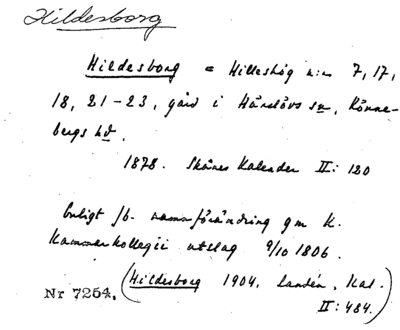 Hildesborg
Hildesborg = Hilleshög n:r 7, 17,
18, 21-23, gård i Härslövs sn, Rönne-
bergs hd.
1878. Skånes Kalender II: 120
Enligt fb. namnförändring gm K.
Kammarkollegii utslag 9/10 1806.
(Hildesborg 1904, Landén, Kal.
II: 484.)
Nr 7254.